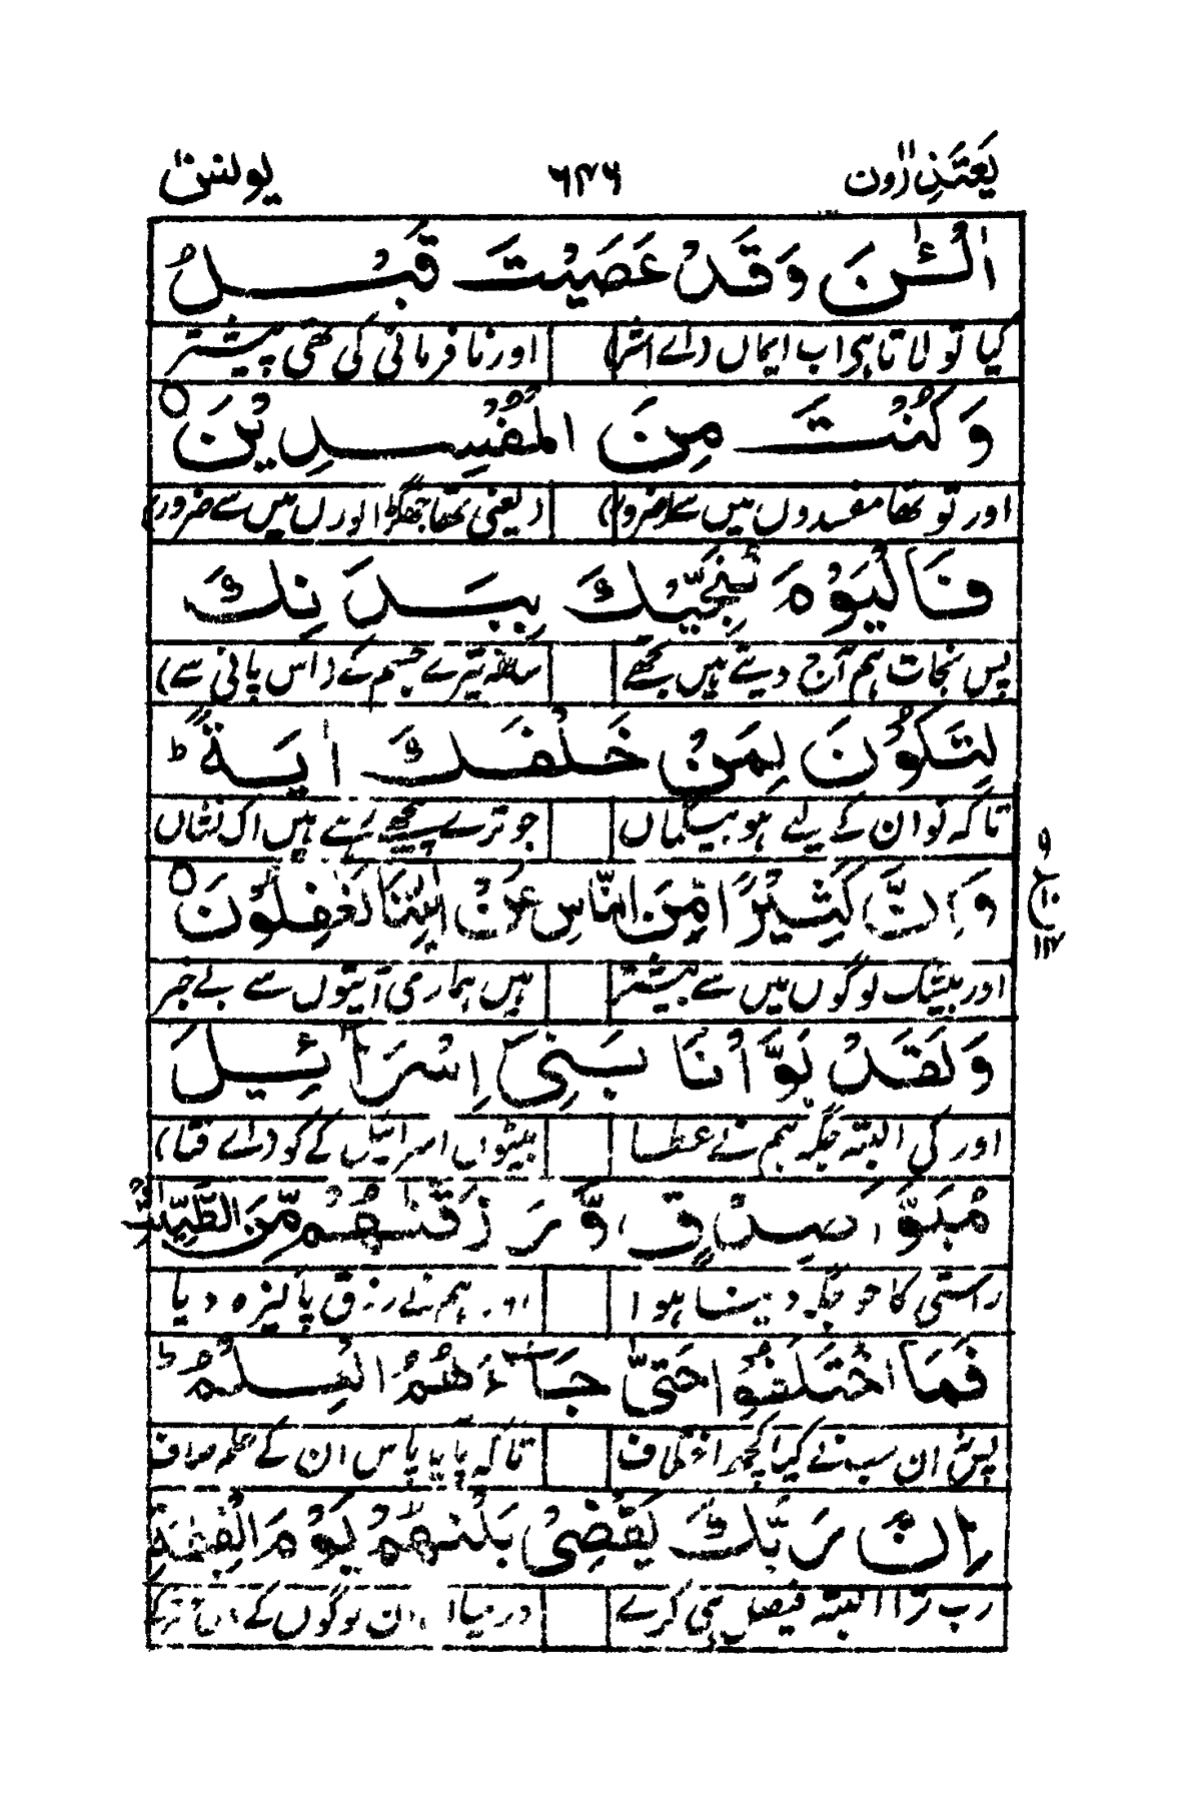 یَعْتَذِرُوْنَ ۱۱ ۶۴۶ یونس ۱۰
اٰلْـٰٔنَ وَقَدْ عَصَيْتَ قَبْلُ
کیا تو لاتا ہی اب ایماں (اے اشر) اور نافرمانی کی تھی پیشتر
وَكُنْتَ مِنَ الْمُفْسِدِيْنَ ○
اور تو تھا مفسدوں میں سے (ضرور) (یعنی تھا جھگڑالوؤں میں سے ضرور)
فَالْيَوْمَ نُنَجِّيْكَ بِبَدَنِكَ
پس نجات ہم آج دیتے ہیں تجھے ساتھ تیرے جسم کے (اس پانی سے)
لِتَكُوْنَ لِمَنْ خَلْفَكَ اٰيَةً ؕ
تاکہ تو ان کے لیے ہو بیگماں جو ترے پیچھے رہے ہیں اک نشاں
وَاِنَّ كَثِيْرًا مِّنَ النَّاسِ عَنْ اٰيٰتِنَا لَغٰفِلُوْنَ ○
اور بیشک لوگوں میں سے بیشتر ہیں ہماری آیتوں سے بے خبر
ع ۹ ۱۰ ۱۴
وَلَقَدْ بَوَّاْنَا بَنِيْٓ اِسْرَآئِيْلَ
اور کی البتہ جگہ ہم نے عطا بیٹوں اسرائیل کے کو (اے فتا)
مُبَوَّاَ صِدْقٍ وَّرَزَقْنٰهُمْ مِّنَ الطَّيِّبٰتِ
راستی کا جو جگہ دینا ہوا اور ہم نے رزق پاکیزہ دیا
فَمَا اخْتَلَفُوْا حَتّٰى جَآءَهُمُ الْعِلْمُ ؕ
پس ان سب نے کیا کچھ اختلاف تاکہ پاس ان کے علم صاف
اِنَّ رَبَّكَ يَقْضِيْ بَيْنَهُمْ يَوْمَ الْقِيٰمَةِ
رب ترا البتہ فیصل ہی کرے درمیاں ان لوگوں کے